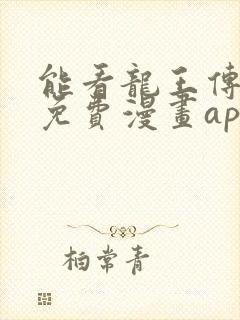 能看龍王傳
免費漫畫ap
柏常青